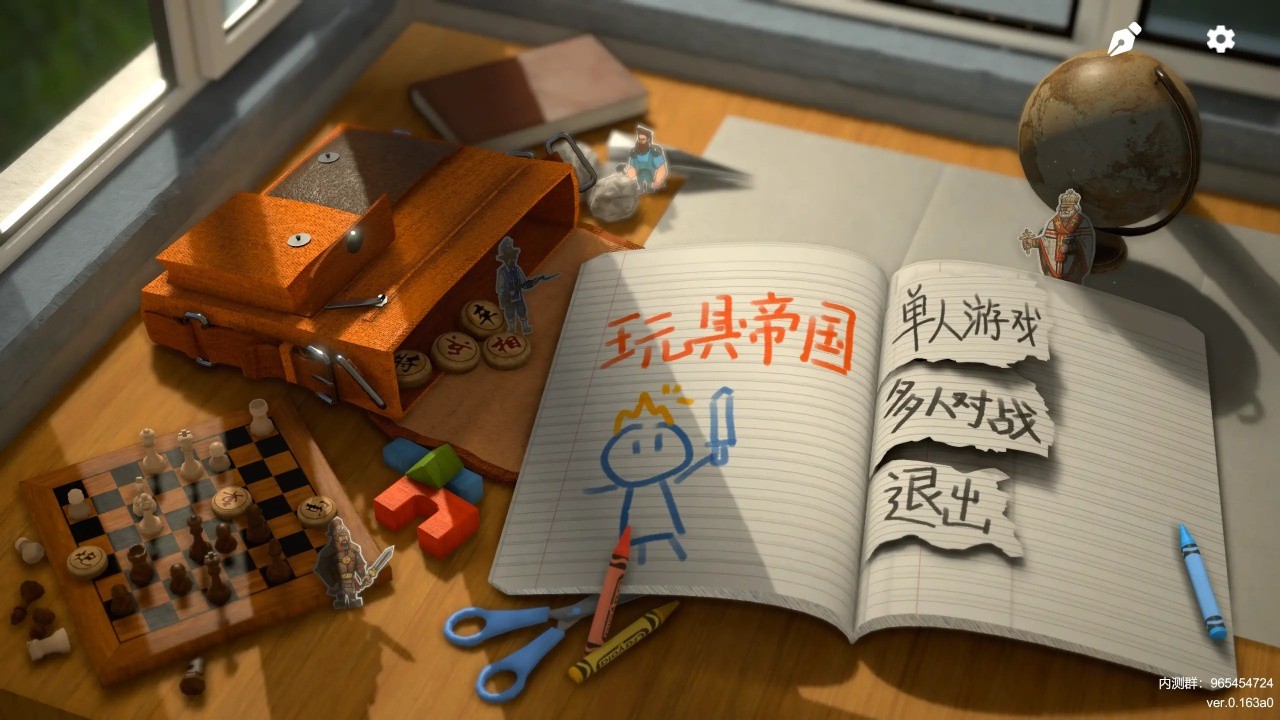 玩具帝国
单人游戏
多人对战
退出
车
相
Crayola
内测群：965454724
ver.0.163a0